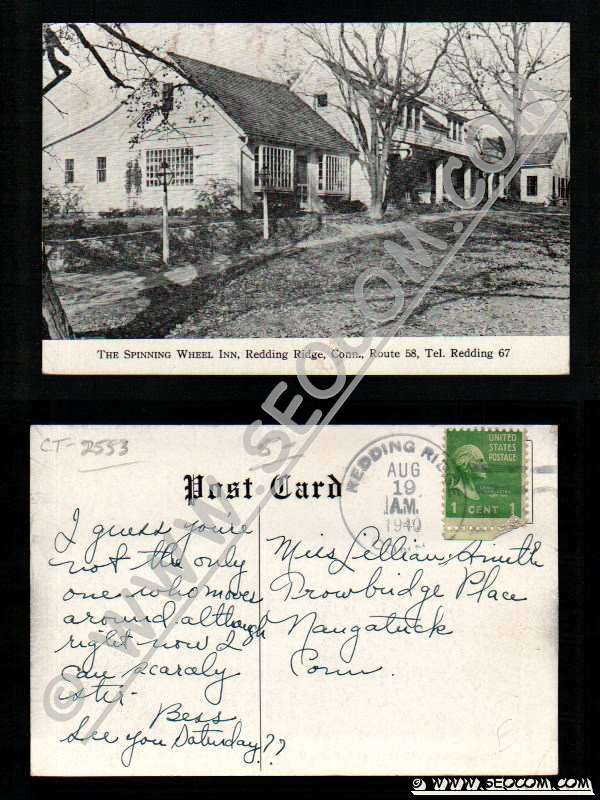 THE SPINNING WHEEL INN, REDDING RIDGE, CONN., ROUTE 58, TEL. REDDING 67
CT-2553
Post Card
REDDING RI
AUG
19
A.M.
1940
UNITED
STATES
POSTAGE
1 CENT 1
I guess you're
not the only
one who moves
around although
right now I
can scarcely
Bess
See you Saturday??
Miss Lillian Smith
Trowbridge Place
Naugatuck
Conn.
© WWW.SEOCOM.COM
© WWW.SEOCOM.COM